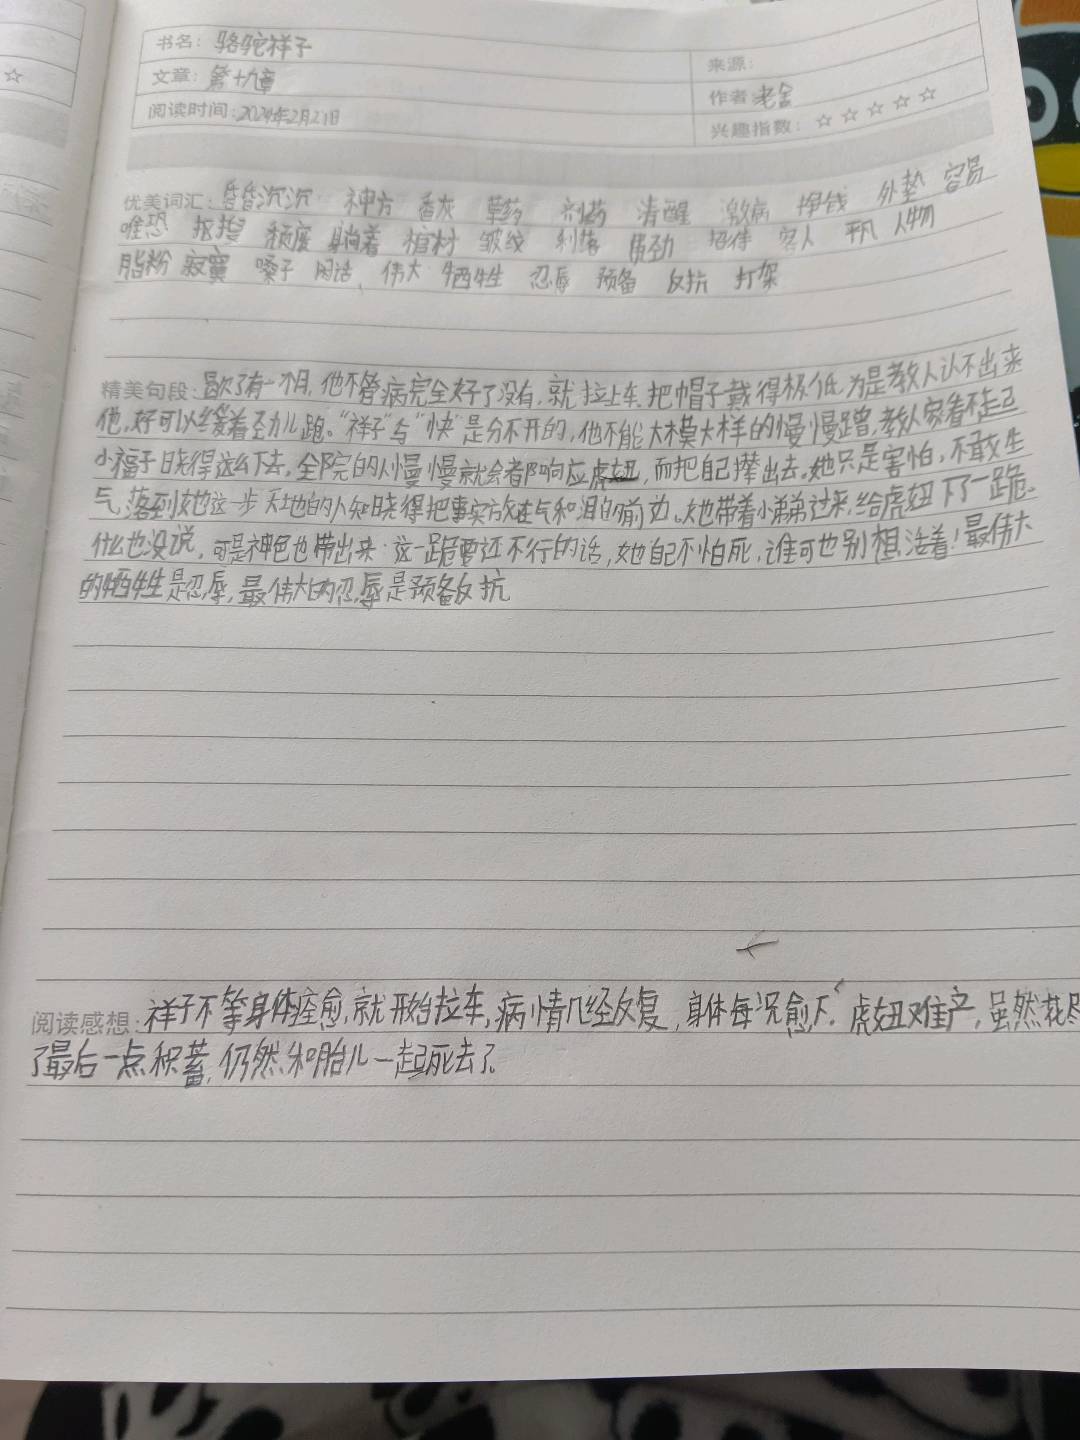 书名：骆驼祥子
来源：
文章：第十九章
作者：老舍
阅读时间：2024年2月21日
兴趣指数：☆☆☆☆☆
优美词汇：昏昏沉沉 神方 香灰 草药 剂药 清醒 激病 挣钱 外垫 容易
唯恐 抠搜 颓废 躺着 棺材 皱纹 利落 费劲 招待 客人 平凡 人物
脂粉 寂寞 嗓子 闲话、伟大 牺牲 忍辱 预备 反抗 打架
精美句段：歇了有一个月，他不管病完全好了没有，就拉上车。把帽子戴得极低，为是教人认不出来
他，好可以缓着劲儿跑。“祥子”与“快”是分不开的，他不能大模大样的慢慢蹭，教人家看不起
小福子晓得这么下去，全院的人慢慢就会都响应虎妞，而把自己撵出去。她只是害怕，不敢生
气，落到她这一步天地的人知晓得把事实放在气和泪的前边。她带着小弟弟过来，给虎妞下了一跪。
什么也没说，可是神色也带出来：这一跪要还不行的话，她自己不怕死，谁可也别想活着！最伟大
的牺牲是忍辱，最伟大的忍辱是预备反抗
阅读感想：祥子不等身体痊愈，就开始拉车，病情几经反复，身体每况愈下，虎妞难产，虽然花尽
了最后一点积蓄，仍然和胎儿一起死去了。